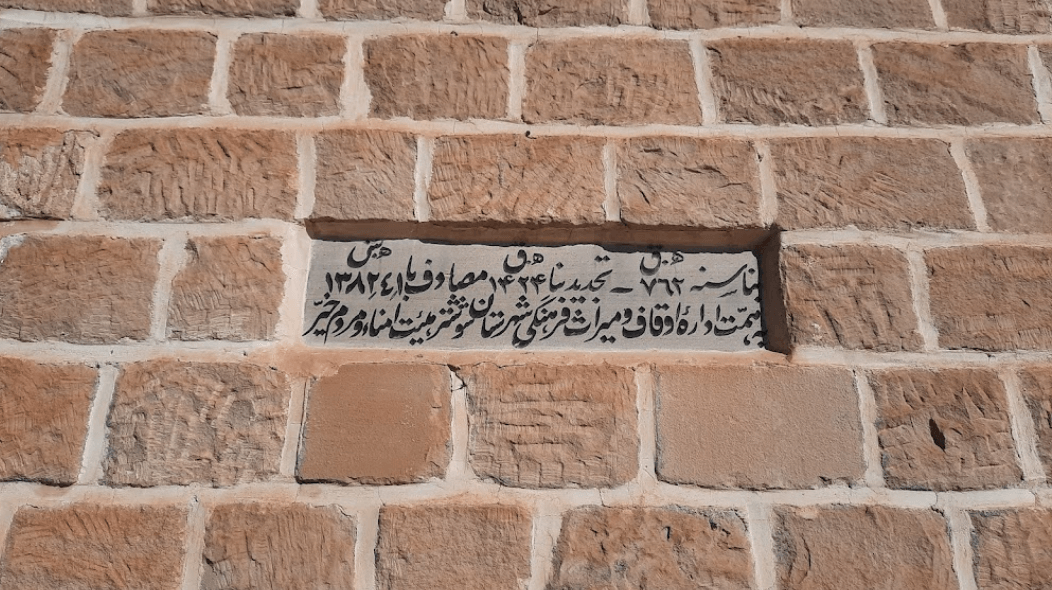 بنا سنه ۷۶۲ ه.ق – تجدید بنا ۱۴۲۴ ه.ق مصادف با ۱۳۸۲٫۴٫۱ ه.ش
بهمّت ادارهٔ اوقاف و میراث فرهنگی شهرستان شوشتر هیئت امناء و مردم خیّر